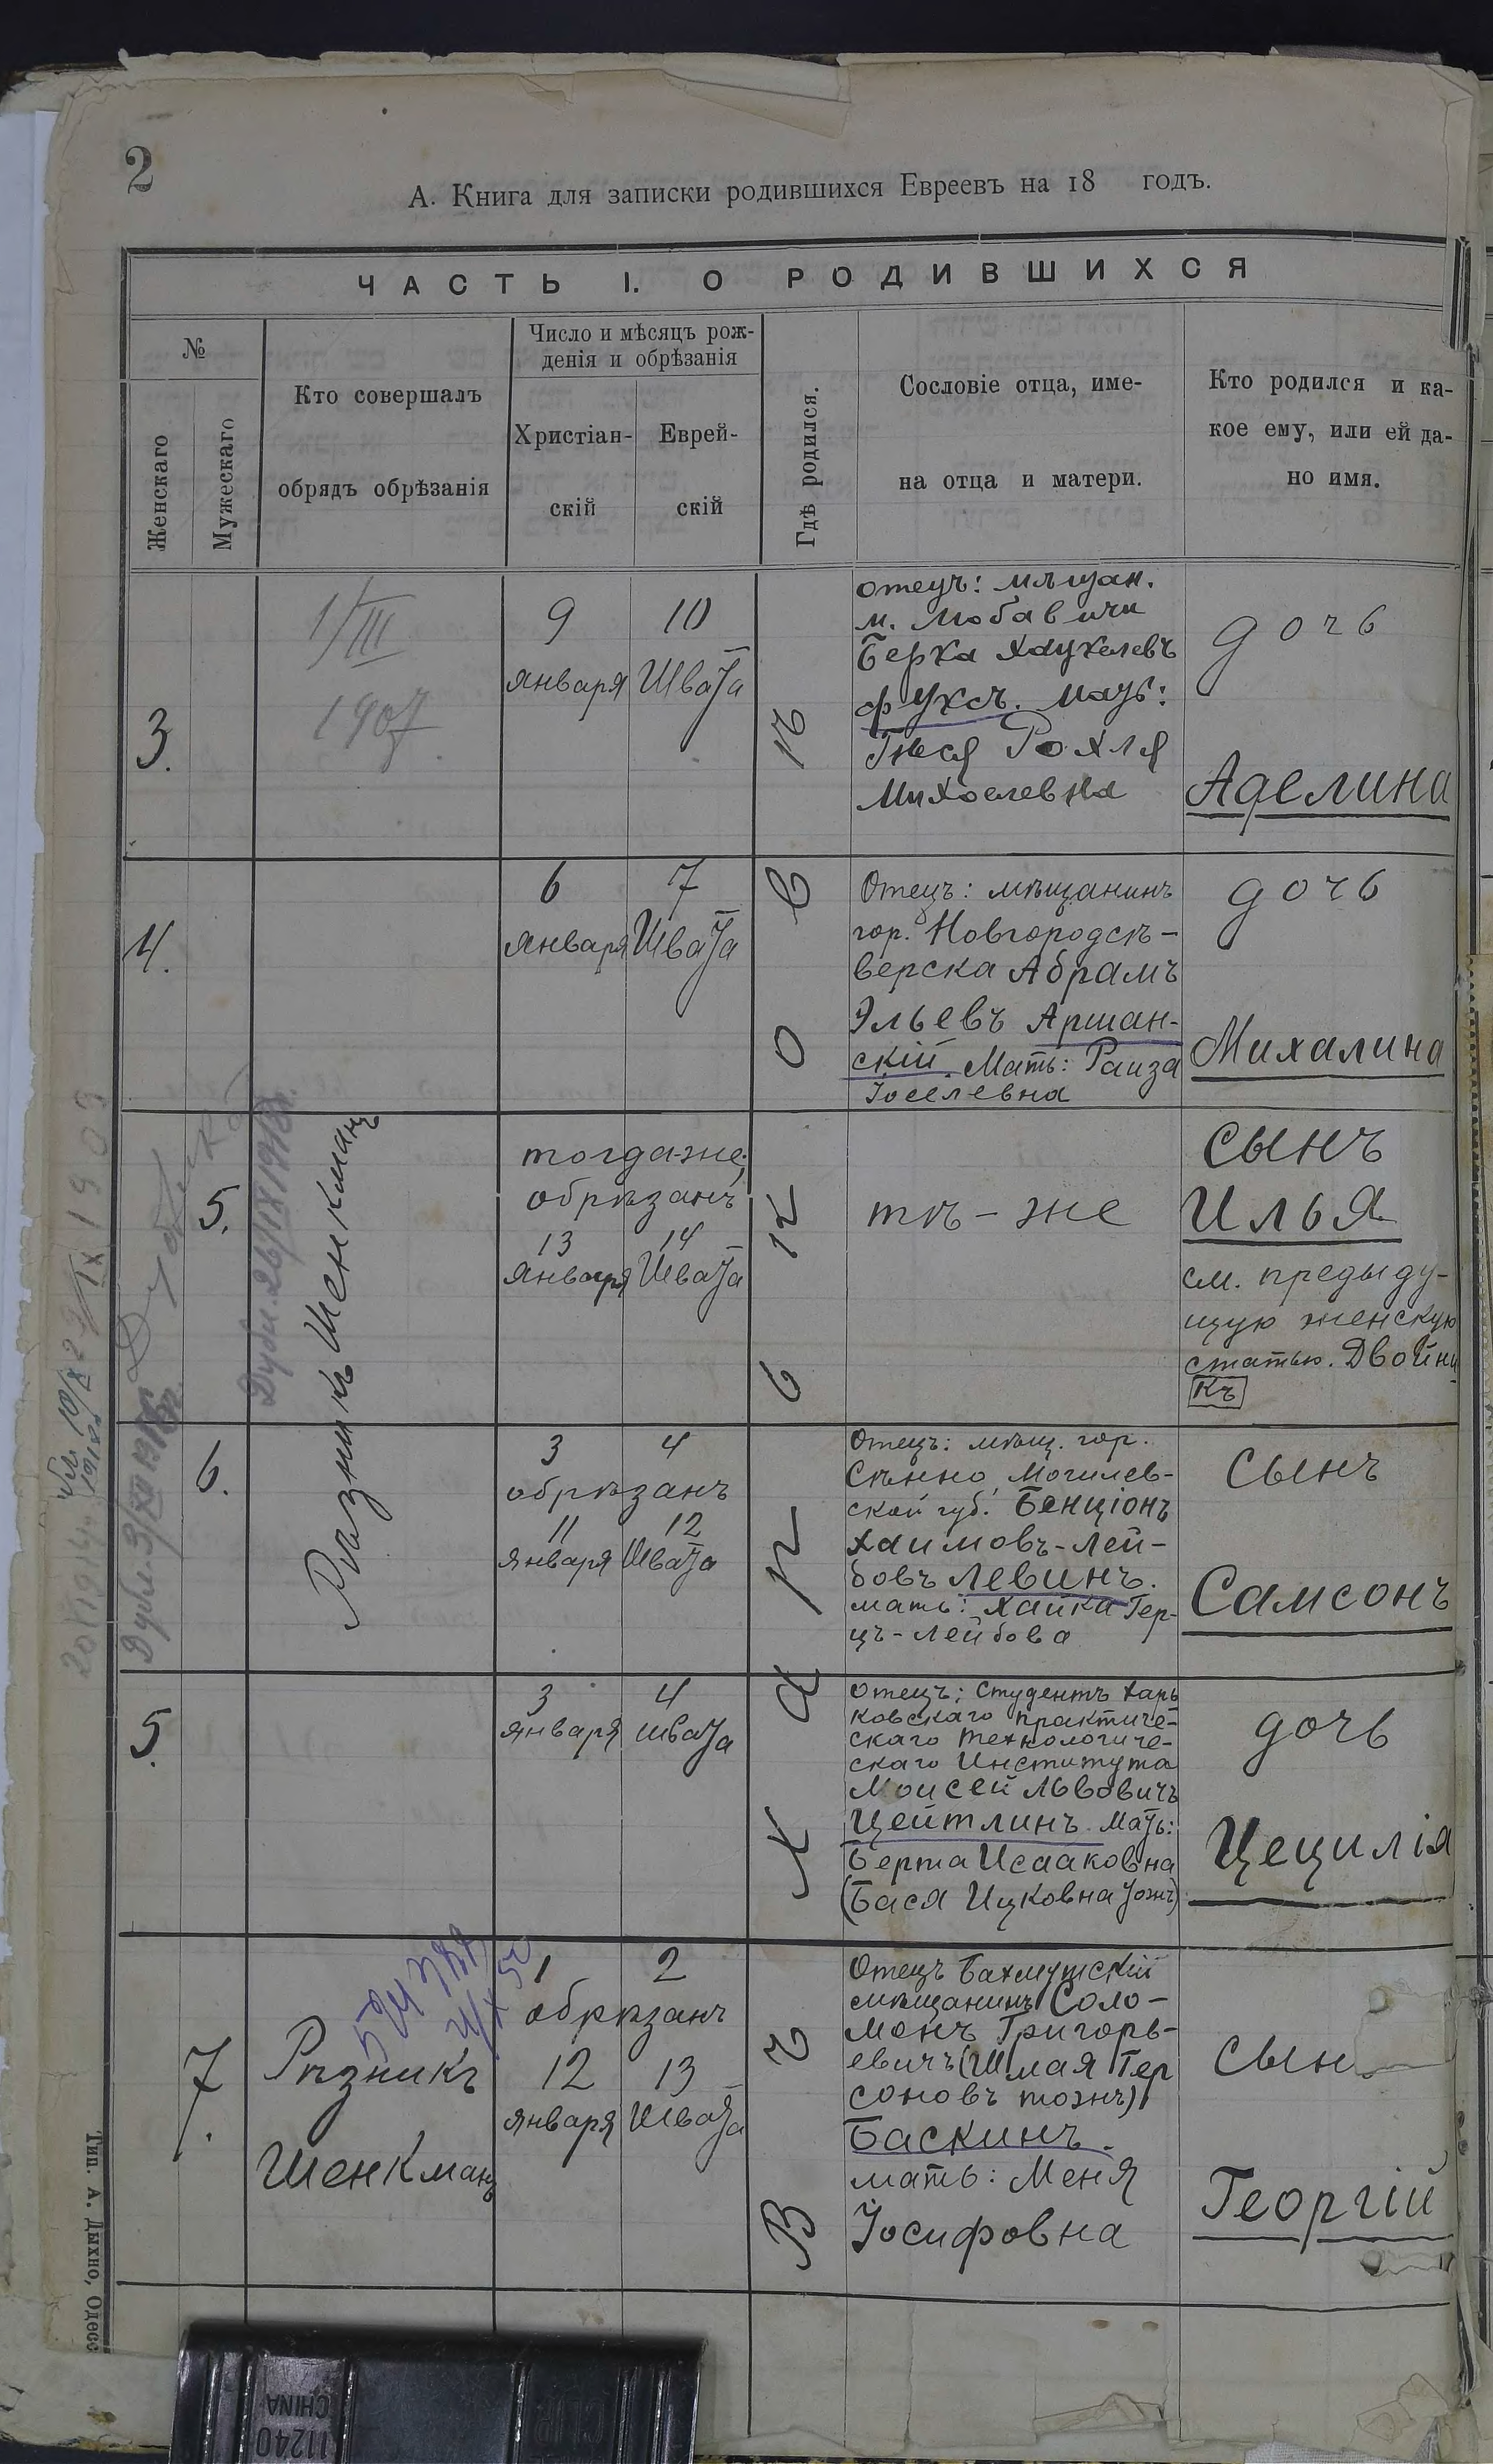 2
А. Книга для записки родившихся Евреевъ на 18 годъ.
ЧАСТЬ I. О РОДИВШИХСЯ
№
Женскаго
Мужескаго
Кто совершалъ
обрядъ обрѣзанія
Число и мѣсяцъ рож-
денія и обрѣзанія
Христіан-
скій
Еврей-
скій
Гдѣ родился.
Сословіе отца, име-
на отца и матери.
Кто родился и ка-
кое ему, или ей да-
но имя.
Въ Харьковѣ
3.
1/III
1907
9
января
10
Швата
отецъ: мѣщан.
м. Любавичи
Берка Хацкелевъ
Фуксъ. Мать:
Гнеся Рохля
Михелевна
дочь
Аделина
4.
6
января
7
Швата
Отецъ: мѣщанинъ
гор. Новгородсѣ-
верска Абрамъ
Эльевъ Аршан-
скій. Мать: Раиза
Іоселевна
дочь
Михалина
5.
Рѣзникъ Шенкманъ
тогда-же,
обрѣзанъ
13
января
14
Швата
тѣ-же
сынъ
Илья
см. предыду-
щую женскую
статью. Двойни-
къ
6.
3
4
обрѣзанъ
11
января
12
Швата
Отецъ: мѣщ. гор.
Сѣнно, Могилев-
ской губ. Бенціонъ
Хаимовъ-Лей-
бовъ Левинъ.
мать: Хайка Гер-
цъ-Лейбова
сынъ
Самсонъ
5.
3
января
4
Швата
Отецъ: Студентъ Харь
ковскаго практиче-
скаго Технологиче-
скаго Института
Моисей Львовичъ
Цейтлинъ. Мать:
Берта Исааковна
(Бася Ицковна тожъ)
дочь
Цецилія
7.
Рѣзникъ
Шенкманъ
1
2
обрѣзанъ
12
января
13
Швата
Отецъ Бахмутскій
мѣщанинъ Соло-
монъ Григорь-
евичъ (Шлая Гер
соновъ тожъ)
Баскинъ.
мать: Меня
Іосифовна
сын
Георгій
Тип. А. Дыхно, Одесс
11240
CHINA